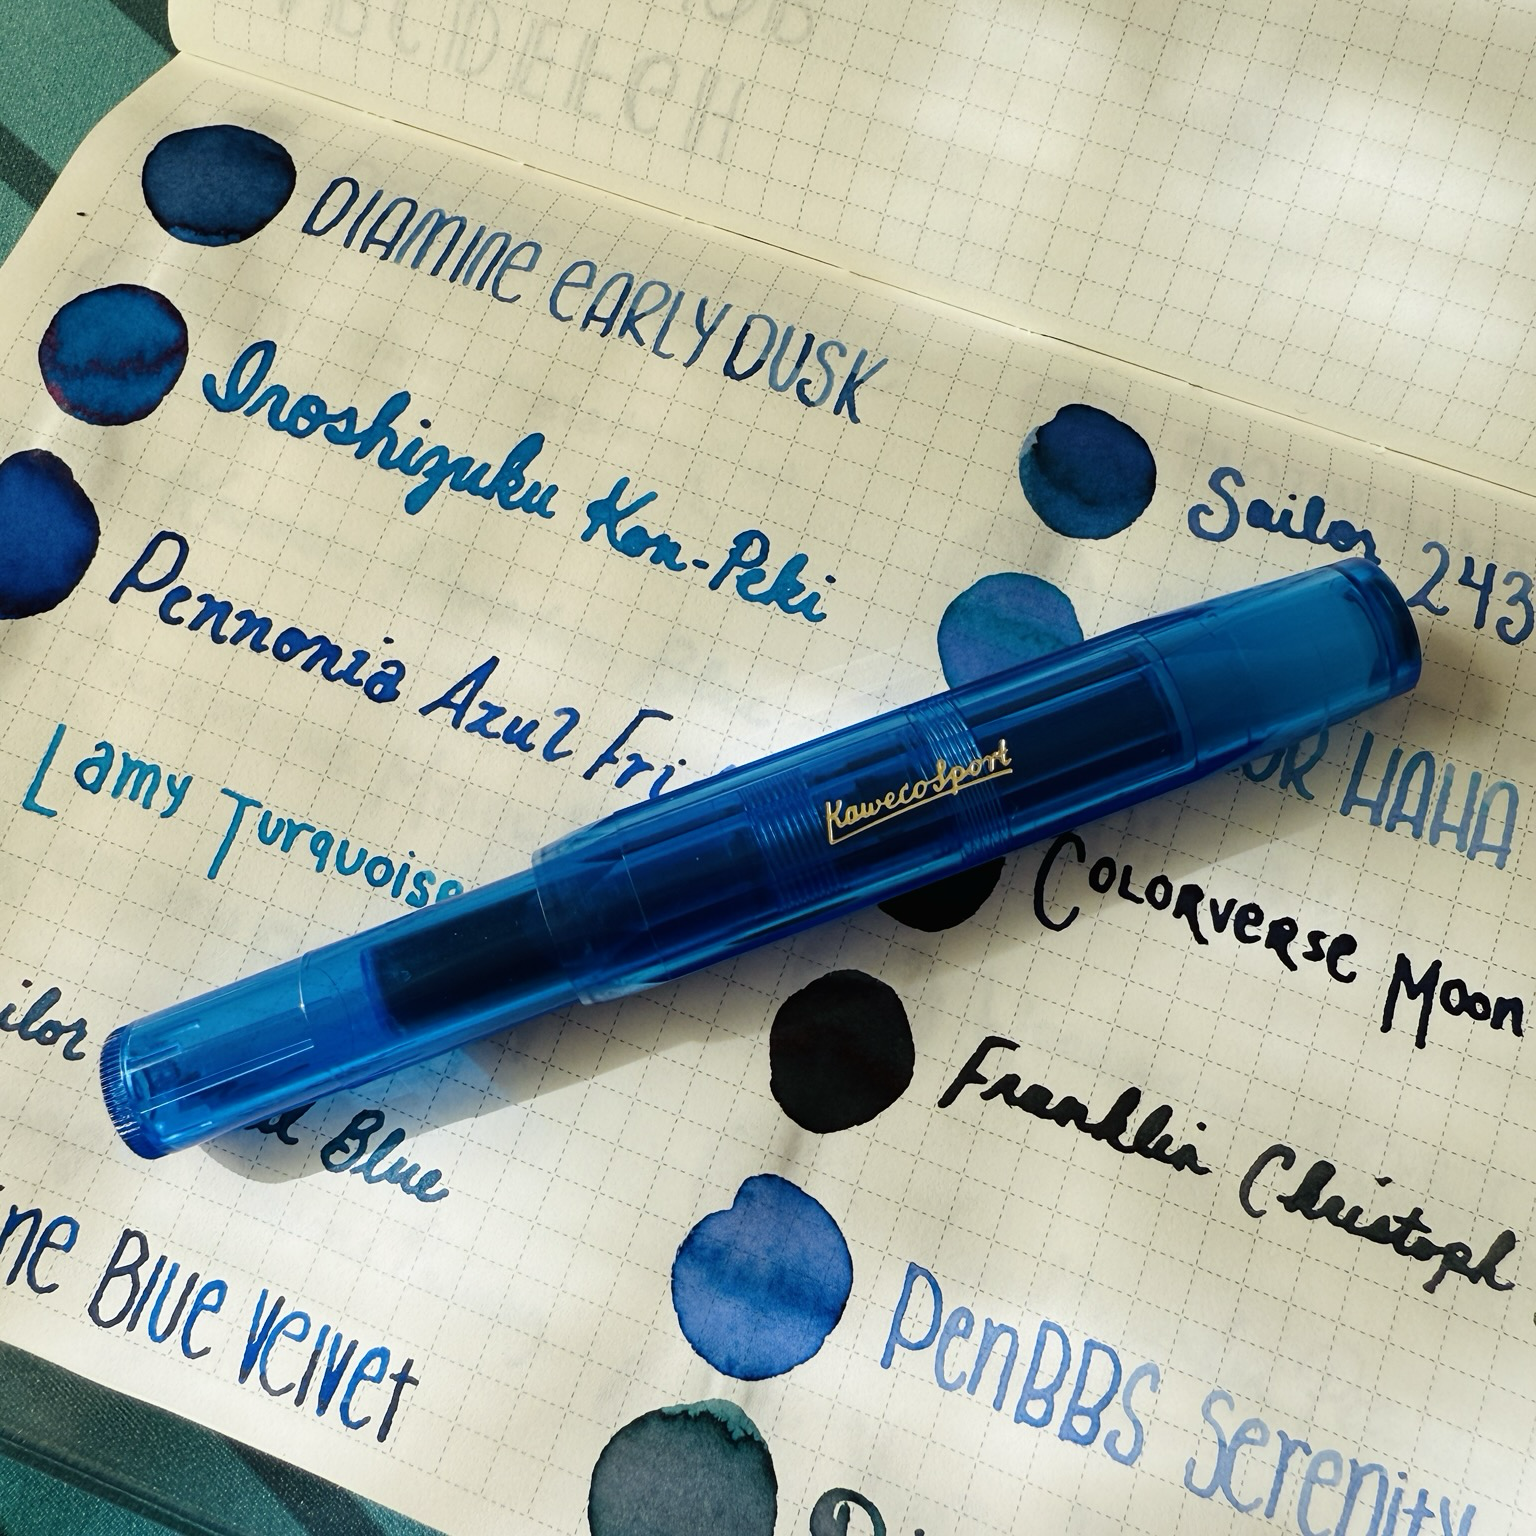 DIAMINE EARLY DUSK
Iroshizuku Kon-Peki
Pennonia Azul Fri
Lamy Turquoise
ilor
Blue
ne Blue Velvet
Sailor 243
OR HAHA
Colorverse Moon
Franklin Christoph
PenBBS Serenity
Di
KawecoSport